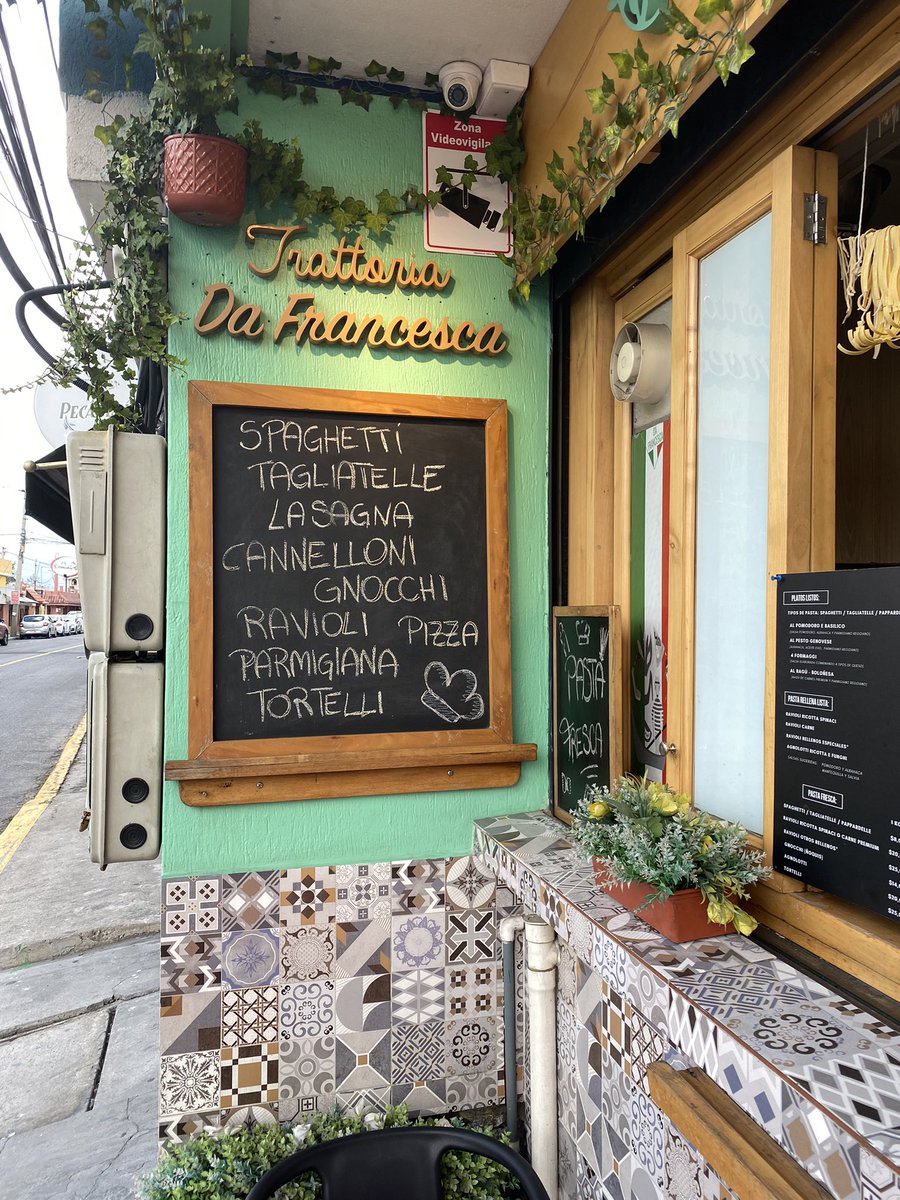 Zona
Videovigila
Trattoria
Da Francesca
PECA
SPAGHETTI
TAGLIATELLE
LASAGNA
CANNELLONI
GNOCCHI
RAVIOLI PIZZA
PARMIGIANA
TORTELLI
PASTA
FRESCA
PLATOS LISTOS:
TIPOS DE PASTA: SPAGHETTI / TAGLIATELLE / PAPPARDEL
AL POMODORO E BASILICO
AL PESTO GENOVESE
4 FORMAGGI
AL RAGÚ - BOLOÑESA
PASTA RELLENA LISTA:
RAVIOLI RICOTTA SPINACI
RAVIOLI CARNE
RAVIOLI RELLENOS ESPECIALES*
AGNOLOTTI RICOTTA E FUNGHI
PASTA FRESCA:
SPAGHETTI / TAGLIATELLE / PAPPARDELLE
RAVIOLI RICOTTA SPINACI O CARNE PREMIUM
RAVIOLI OTROS RELLENOS*
GNOCCHI (ÑOQUIS)
AGNOLOTTI
TORTELLI